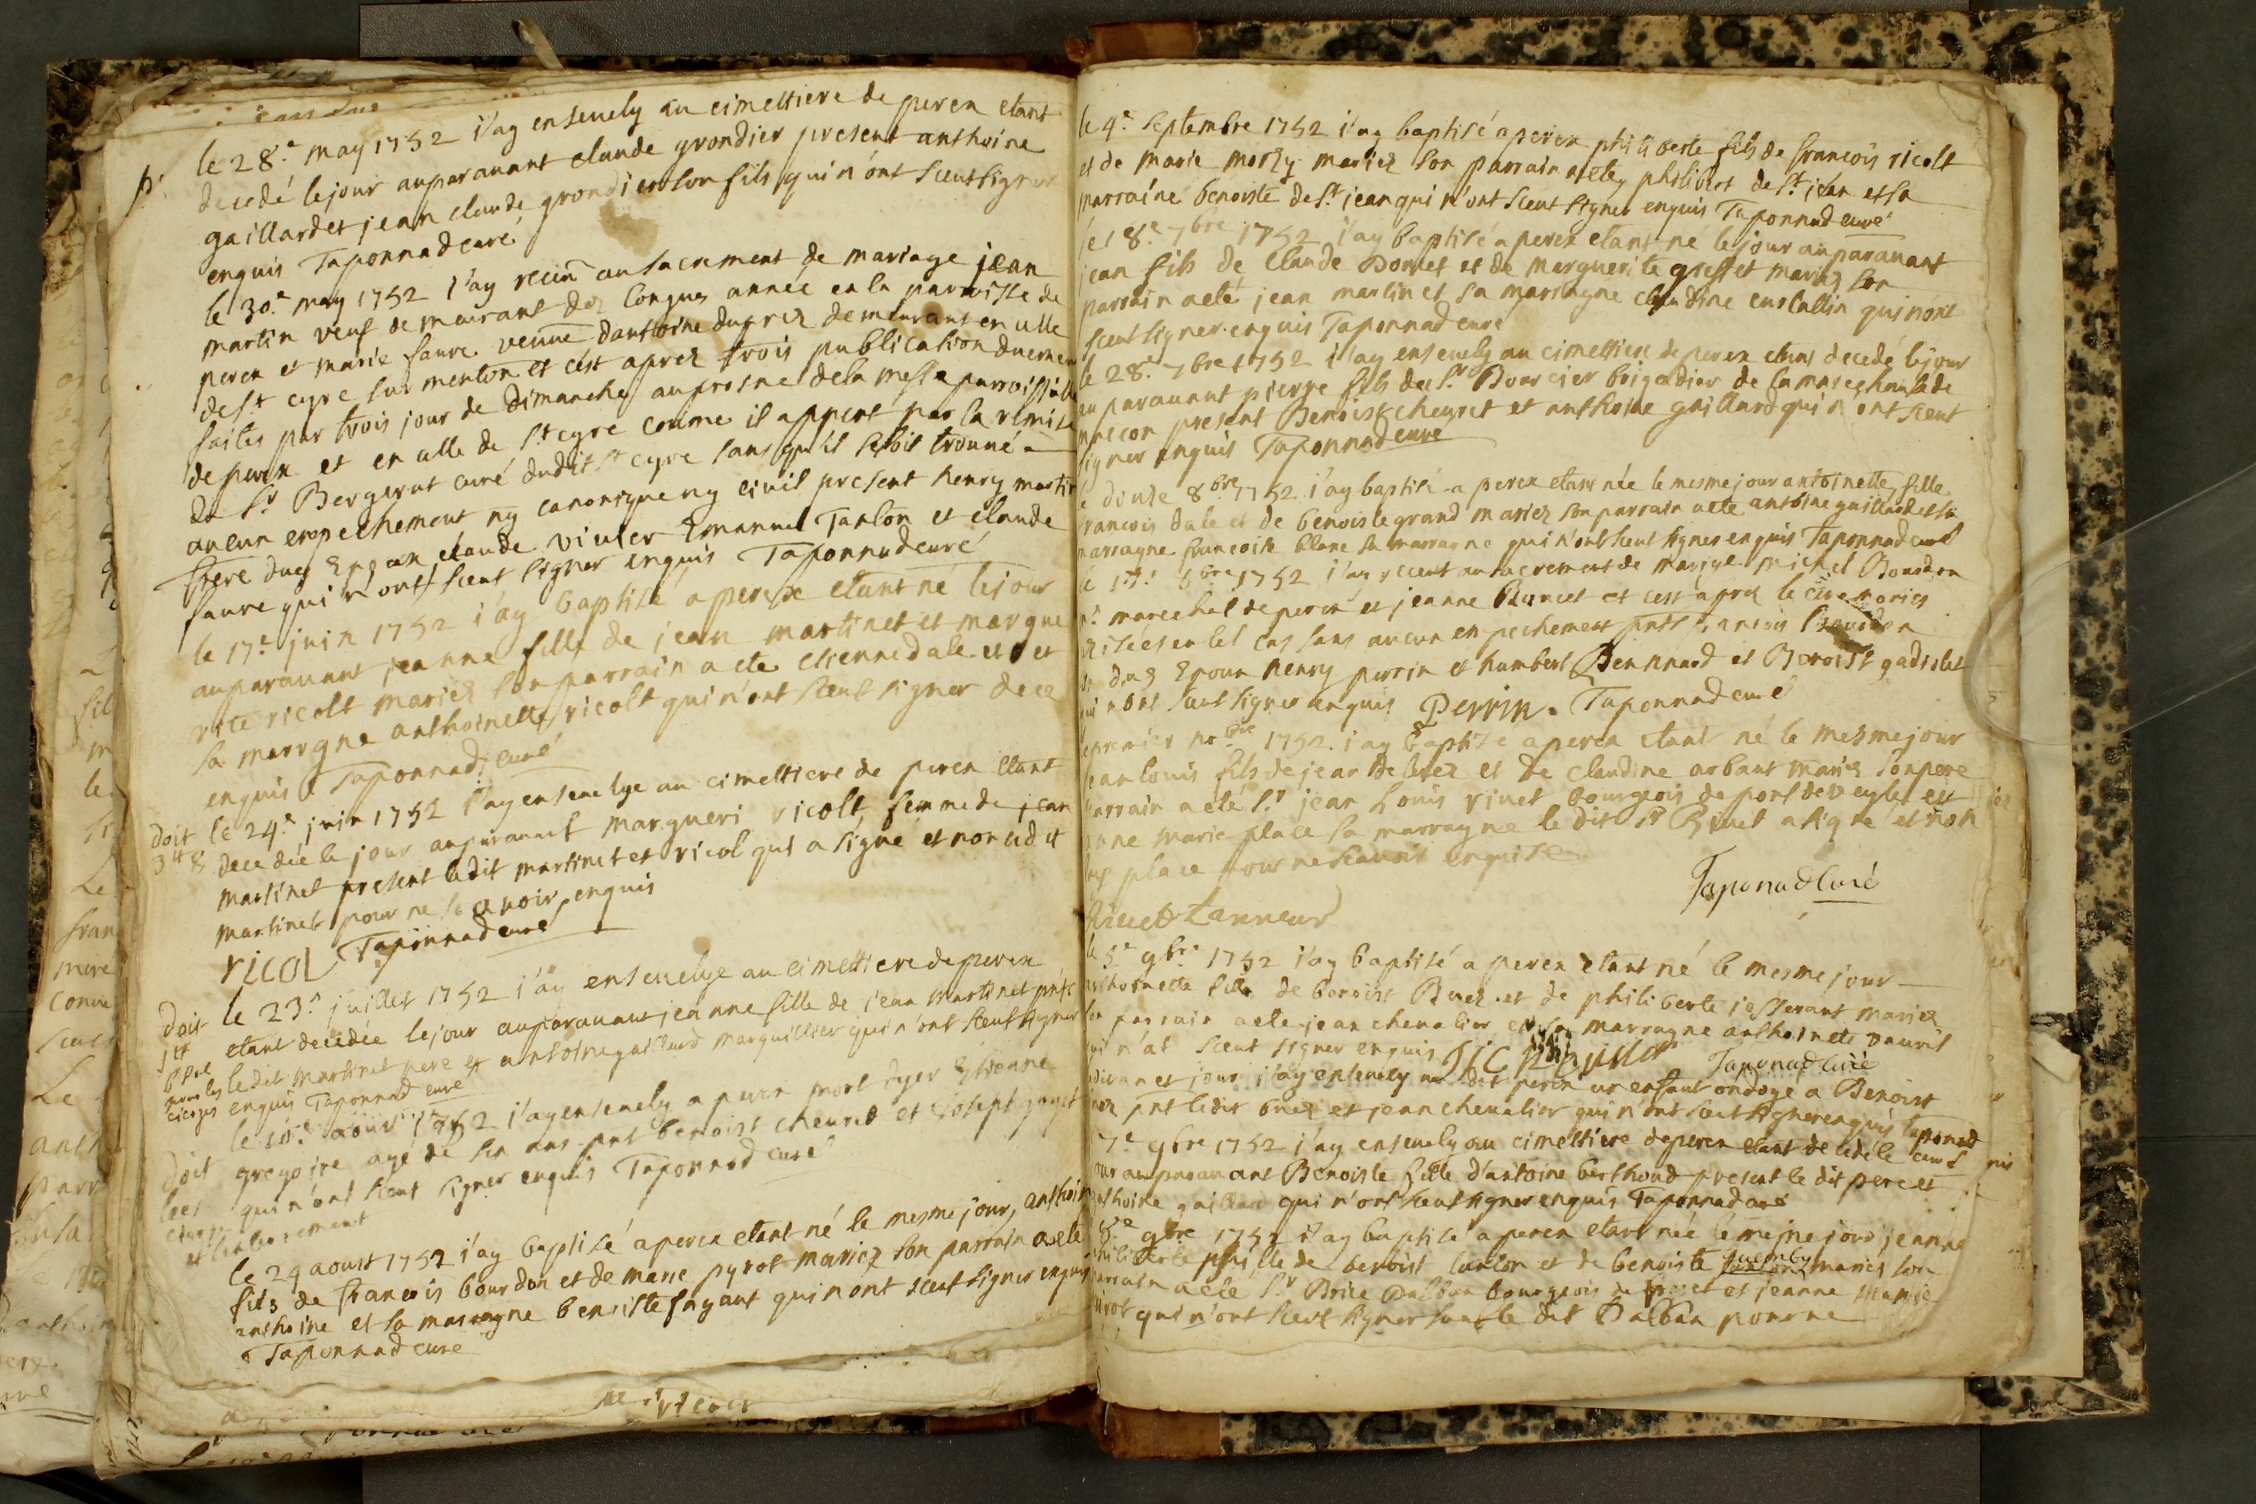 le 28.e may 1752 i'ay enseuely au cimettiere de peren etant
decedé le jour auparauant claude grondier present anthoine
gaillardet jean claude grondier son fils qui n'ont sceut signer
enquis Taponnad curé
le 30.e may 1752 i'ay receu au sacrement de mariage jean
martin veuf demeurant dez longues année en la parroisse de
peren et marie faure veuue dantoine duprez demeurant en celle
de St cyre sur menton et c'est aprez trois publication duemen
faites par trois jour de dimanche au prosne de la messe parroissialle
de peren et en celle de St cyre comme il appert par la remise
de Sr Bergerat curé dudit St cyre sans qu'il se soit trouué
aucun empechement ny canonique ny ciuil present henry martin
frere dud Epoux claude viuier Emanuel Tanlon et claude
faure qui n'ont sceut signer enquis Taponnad curé
le 17.e juin 1752 i'ay baptisé a peren etant né le jour
auparauant jeanne fille de jean martinet et margue
rite ricolt mariez son parrain a ete etienne dale et
sa marrgne anthoinette ricolt qui n'ont sceut signer de ce
enquis Taponnad curé
doit
3tt 8
le 24.e juin 1752 i'ay enseuelye au cimettiere de peren etant
decedée le jour auparauant margueri ricolt femme de jean
martinet present ledit martinet et ricol qui a signé et non ledit
martinet pour ne scauoir enquis
ricol Taponnad curé
doit
1tt
pour les
cierges
le 23.e juillet 1752 i'ay enseuelye au cimettiere de peren
etant decedée le jour auparauant jeanne fille de jean martinet pnts
ledit martinet pere et antoine gaillard marguillier qui n'ont sceut signer
enquis Taponnad curé
doit
les
cierges
et l'enterrement
le 10.e aoust 1752 i'ay enseuely a peren mort Etienne
gregoire agé de six ans pnt benoist cheurd et joseph
qui n'ont sceut signer enquis Taponnad curé
le 24 aoust 1752 i'ay baptisé a peren etant né le mesme jour anthoine
fils de francois bourdon et de marie pyrot mariez son parrain a ete
anthoine et sa marragne benoiste fayant qui n'ont sceut signer enquis
Taponnad curé
le 4.e septembre 1752 i'ay baptisé a peren philiberte fils de francois ricolt
et de marie morzy mariez son parrain a ete philibert de St jean et sa
marraine benoiste de St jean qui n'ont sceut signer enquis Taponnad curé
le 18.e 7bre 1752 i'ay baptisé a peren etant né le jour auparauant
jean fils de claude Donnet et de marguerite greffet mariez son
parrain a eté jean martin et sa marragne claudine qui n'ont
sceut signer enquis Taponnad curé
le 28.e 7bre 1752 i'ay enseuely au cimettiere de peren etant decedé le jour
auparauant pierre fils du Sr Bourcier brigadier de la marechaussée de
macon present Benoist cheuret et anthoine gaillard qui n'ont sceut
signer enquis Taponnad curé
le douze 8bre 1752 i'ay baptisé a peren etant née le mesme jour antoinette fille
francois dale et de benoiste grand mariez son parrain a ete antoine gaillardet sa
marragne francoise blanc sa marragne qui n'ont sceut signer enquis Taponnad curé
le 8bre 1752 i'ay receut au sacrement de mariage michel Bourdon
marechal de peren et jeanne Buncet et c'est aprez le ceremonies
en tel cas sans aucun enpechement pnts francois Bourdon
dud Epoux henry perrin et humbert Bennaud et Benoist gadiolet
qui n'ont sceut signer enquis Perrin. Taponnad curé
le premier nobre 1752 i'ay baptisé a peren etant né le mesme jour
jean louis fils de jean et de claudine arbant mariez son pere
parrain a eté Sr jean Louis riuet bourgeois de pont de veyle et
anne marie place sa marragne le dit Sr Riuet a signé et non
place pour ne scauoir enquise
Taponad Curé
Riuet Tanneur
le 5.e 9bre 1752 i'ay baptisé a peren etant né le mesme jour
anthoinette fille de benoist Buez et de philiberte jesserant mariez
son parrain a ete jean chevalier et sa marragne anthoinette
qui n'at sceut signer enquis Taponad Curé
ledit an et jour i'ay enseuely au dit peren un enfant ondoyé a Benoist
buez pnt ledit buez et jean chevalier qui n'ont sceut signer enquis Taponad
7.e 9bre 1752 i'ay enseuely au cimettiere de peren etant decedé le curé
jour auparauant Benoiste fille d'antoine berthoud present le dit pere et
anthoine gaillard qui n'ont sceut signer enquis Taponnad curé
8.e 9bre 1752 i'ay baptisé a peren etant née le mesme jour jeanne
philiberte fille de benoist tanlon et de benoiste mariez son
parrain a eté Sr Brice Balban bourgeois de et jeanne marie
pirot qui n'ont sceut signer sauf le dit Balban pour ne